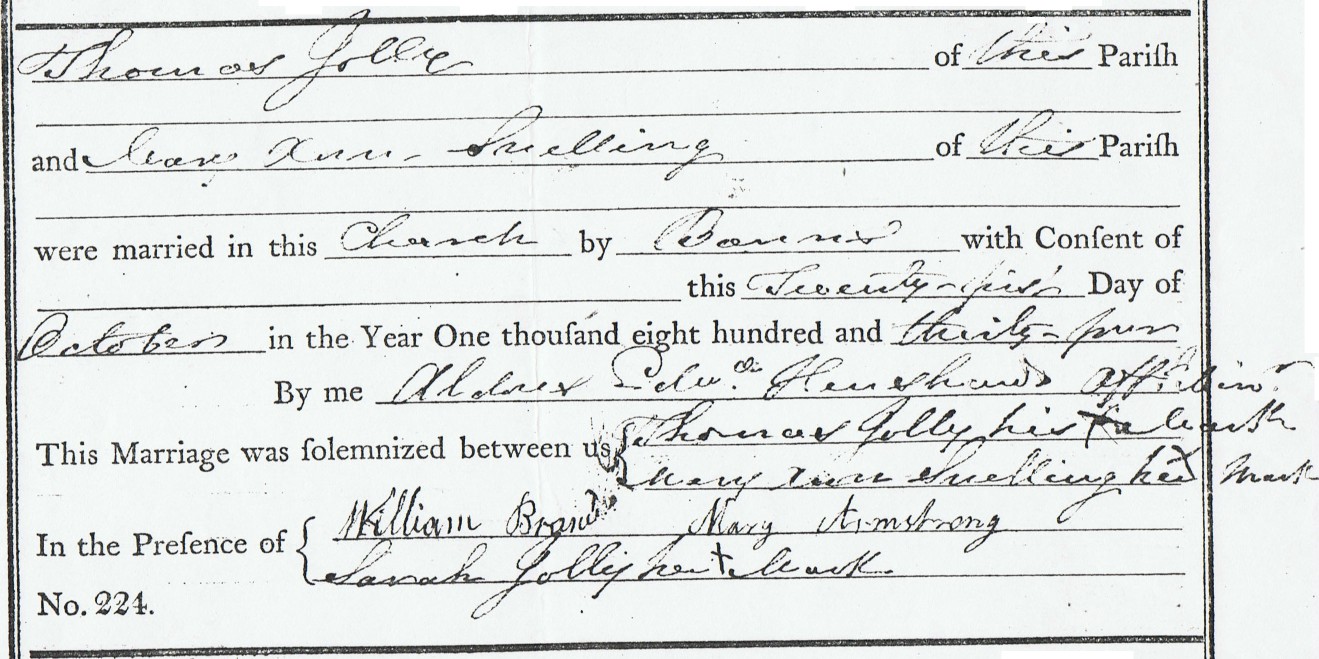 Thomas Jolly of this Pariſh
and Mary Ann Snelling of this Pariſh
were married in this Church by Banns with Conſent of
this Twenty-firſt Day of
October in the Year One thouſand eight hundred and thirty-four
By me Aldrex Edwd. Henshaw Offg. Minr.
This Marriage was ſolemnized between us { Thomas Jolly his X Mark
Mary Ann Snelling her X Mark
In the Preſence of { William Brand Mary Armstrong
Sarah Jolly her + Mark
No. 224.